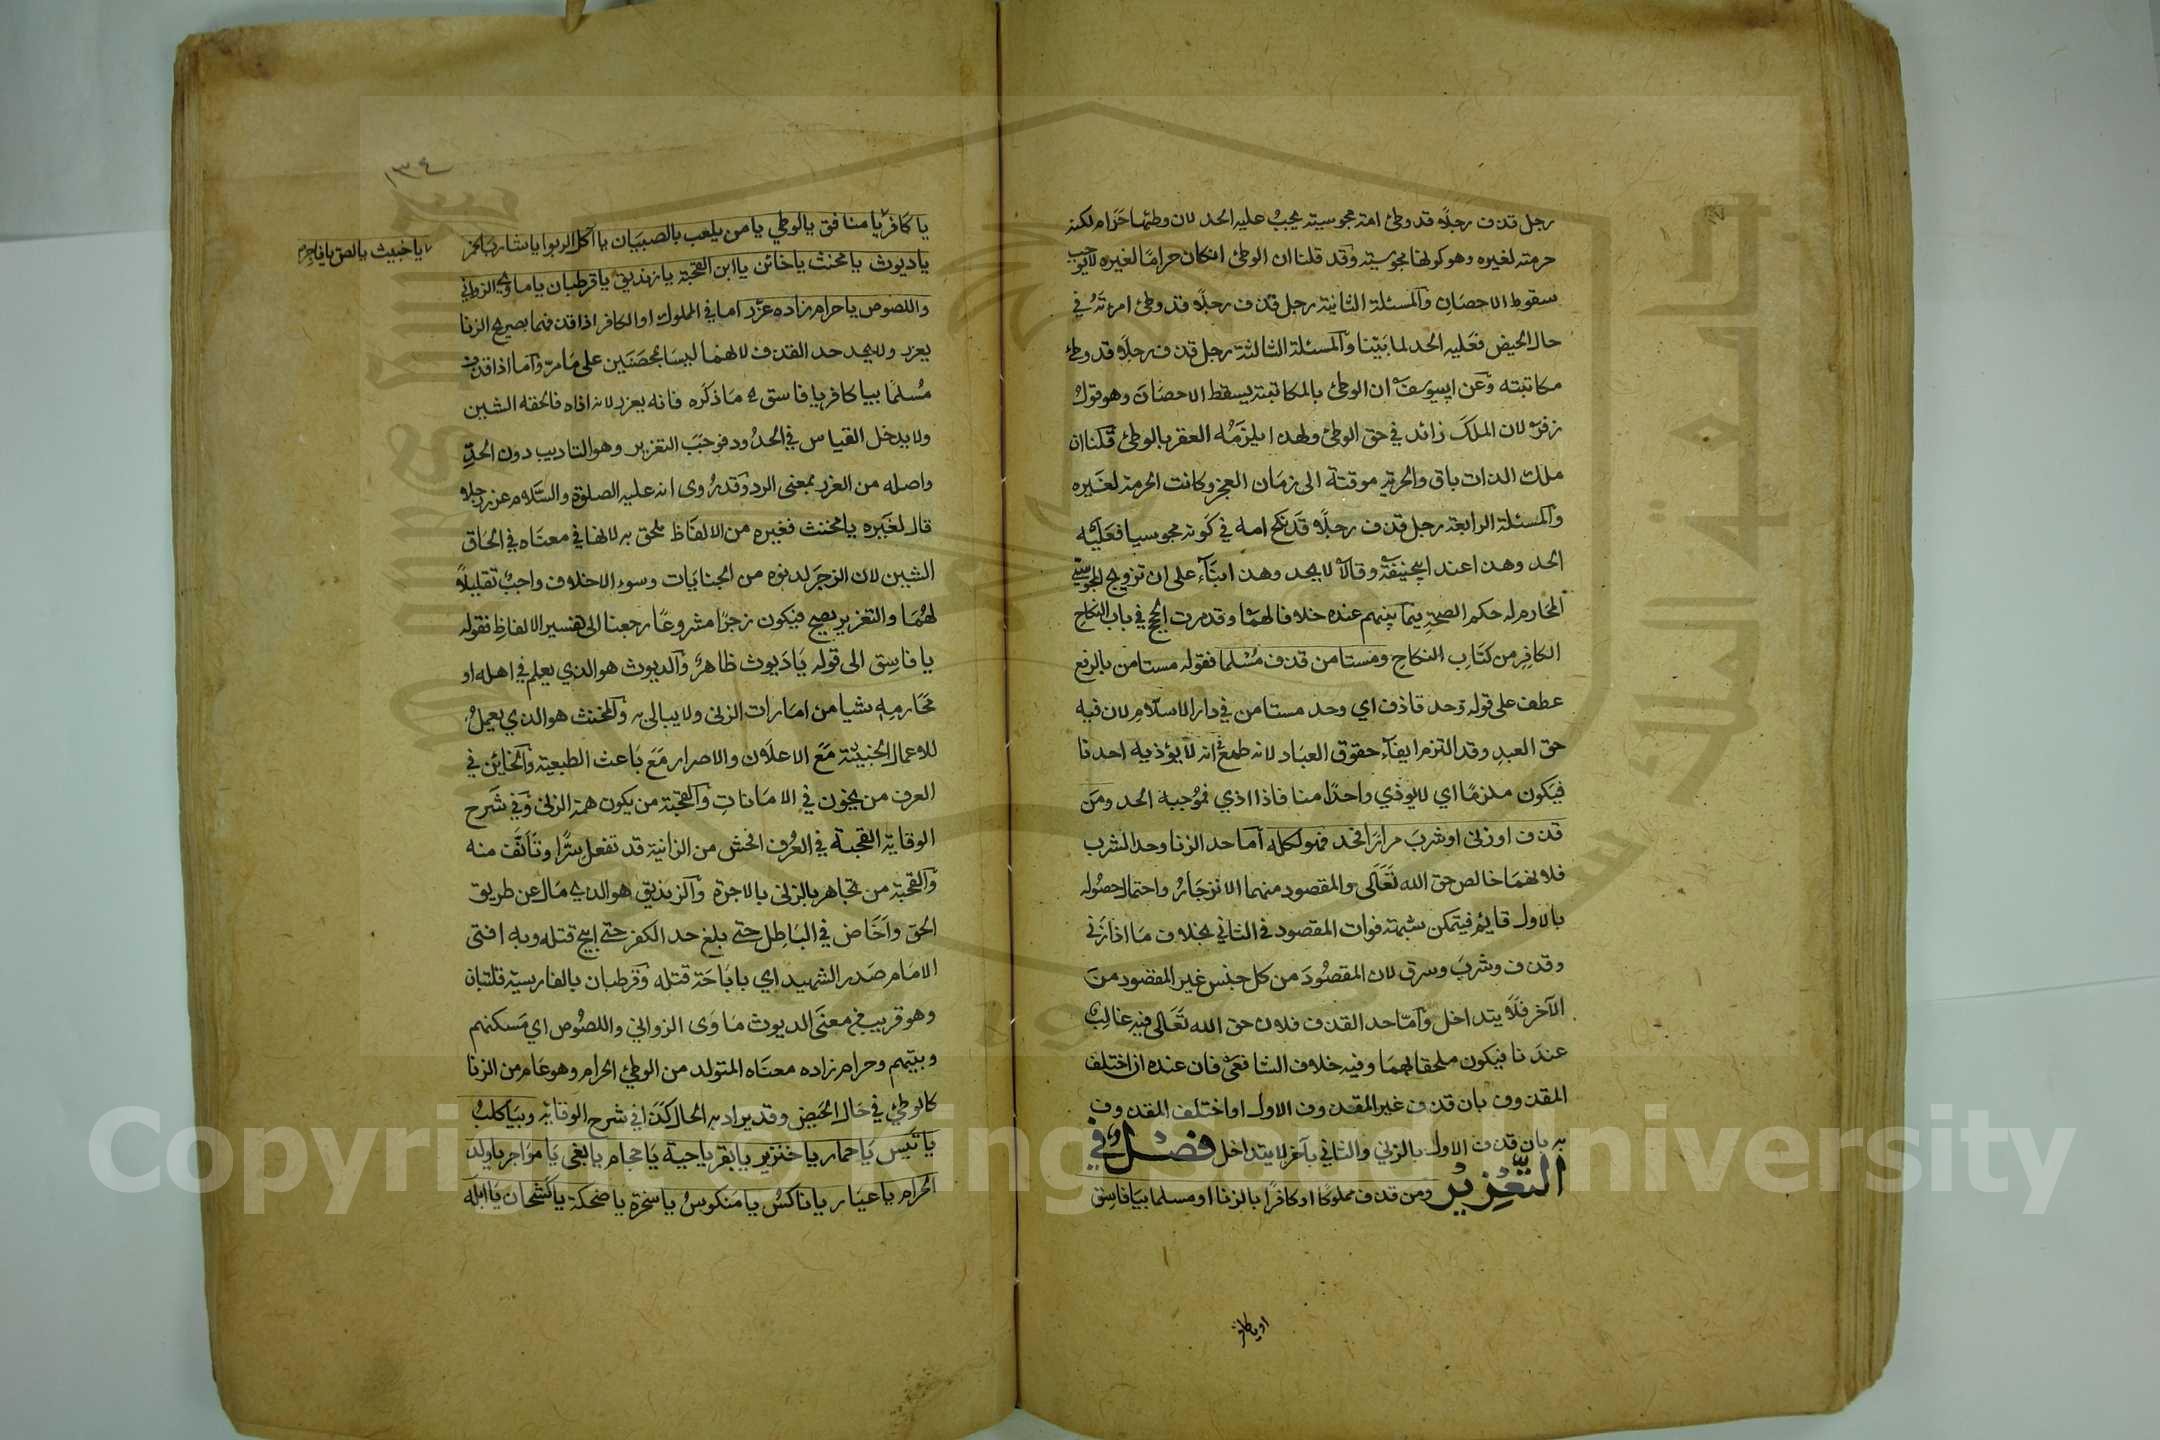 رجل قذف رجلاً قد وطئ امته مجوسيته يجب عليه الحد لان وطئها حرام لكنه
حرمته لغيره وهو كونها مجوسيته وقد قلنا ان الوطئ ان كان حراما لغيره لا يوجب
سقوط الاحصان والمسئلة الثانية رجل قذف رجلاً قد وطئ امرءته في
حال الحيض فعليه الحد لما بيّنا والمسئلة الثالثة رجل قذف رجلاً قد وطئ
مكاتبته وعن ابيوسف ان الوطئ بالمكاتبة يسقط الاحصان وهو قول
زفر لان الملك زائد في حق الوطئ ولهذا يلزمه العقر بالوطئ قلنا ان
ملك الذات باق والحرمة موقتة الى زمان العجز وكانت الحرمة لغيره
والمسئلة الرابعة رجل قذف رجلاً قد نكح امه في كونه مجوسيا فعليه
الحد وهذا عند ابيحنيفة وقالا لا يحد وهذا بناء على ان تزويج المجوسي
المحارم له حكم الصحة فيما بينهم عنده خلافا لهما وقد مرت الحجج في باب النكاح
الكافر من كتاب النكاح ومستامن قذف مسلما فقوله مستامن بالرفع
عطف على قوله وحد قاذف اي وحد مستامن في دار الاسلام لان فيه
حق العبد وقد التزم ايفاء حقوق العباد لانه طمع في انه لا يؤذيه احدنا
فيكون ملزما اي لا يوذي واحدا منا فاذا اذي فموجبه الحد ومن
قذف او زنى او شرب مرارا فحد فهو لكله اما حد الزنا وحد الشرب
فلانهما خالص حق الله تعالى والمقصود منهما الانزجار واحتمال حصوله
بالاول قايم فيتمكن شبهة فوات المقصود في الثاني بخلاف ما اذا زنى
وقذف وشرب وسرق لان المقصود من كل جنس غير المقصود من
الآخر فلا يتداخل واما حد القذف فلان حق الله تعالى فيه غالب
عندنا فيكون ملحقا لهما وفيه خلاف الشافعي فان عنده ان اختلف
المقذوف بان قذف غير المقذوف الاول او اختلف المقذوف
به بان قذف الاول بالزنى والثاني بآخر لا يتداخل فصل في
التعزير ومن قذف مملوكا او كافرا بالزنا او مسلما بيا فاسق
او يا كافر
١٣٤
يا كافر يا منافق يا لوطي يا من يلعب بالصبيان يا آكل الربوا يا شارب الخمر
يا خبيث يا لص يا فاجر
يا ديوث يا مخنث يا خائن يا ابن القحبة يا زنديق يا قرطبان يا ماوى الزواني
واللصوص يا حرام زاده عزر اما في المملوك او الكافر اذا قذفهما بصريح الزنا
يعزر ولا يحد حد القذف لانهما ليسا بمحصنين على ما مرّ واما اذا قذف
مسلما بيا كافر يا فاسق ما ذكره فانه يعزر لانه اذاه فالحقه الشين
ولا يدخل القياس في الحدود فوجب التعزير وهو التاديب دون الحد
واصله من العزر بمعنى الرد وقد روى انه عليه الصلوة والسلام عزر رجلا
قال لغيره يا مخنث فغيره من الالفاظ ملحق به لانها في معناه في الحاق
الشين لان الزجر لدنوه من الجنايات وسوء الاخلاق واجب تقليلا
لهما والتعزير يصلح فيكون زجرا مشروعا رجعنا الى تفسير الالفاظ فقوله
يا فاسق الى قوله يا ديوث ظاهر والديوث هو الذي يعلم في اهله او
محارمه شيا من امارات الزنى ولا يبالي به والمخنث هو الذي يعمل
للاعمال الخبيثة مع الاعلان والاصرار مع باعث الطبيعة والخاين في
العرف من يخون في الامانات والقحبة من يكون همه الزنى وفي شرح
الوقاية القحبة في العرف افحش من الزانية قد تفعل سرا وتأنف منه
والقحبة من تجاهر بالزنى بالاجرة والزنديق هو الذي مال عن طريق
الحق واخاض في الباطل حتى بلغ حد الكفر حتى ابيح قتله وبه افتى
الامام صدر الشهيد اي باباحة قتله وقرطبان بالفارسية قلتبان
وهو قريب في معنى الديوث ماوى الزواني واللصوص اي مسكنهم
وبيتهم وحرام زاده معناه المتولد من الوطئ الحرام وهو عام من الزنا
كالوطئ في حال الحيض وقد يراد به الحال كذا في شرح الوقاية وبيا كلب
يا تيس يا حمار يا خنزير يا بقر يا حية يا حجام يا بغى يا مواجر يا ولد
الحرام يا عيار يا ناكس يا منكوس يا سخرة يا ضحكة يا كشحان يا ابله
Copyright © King Saud University